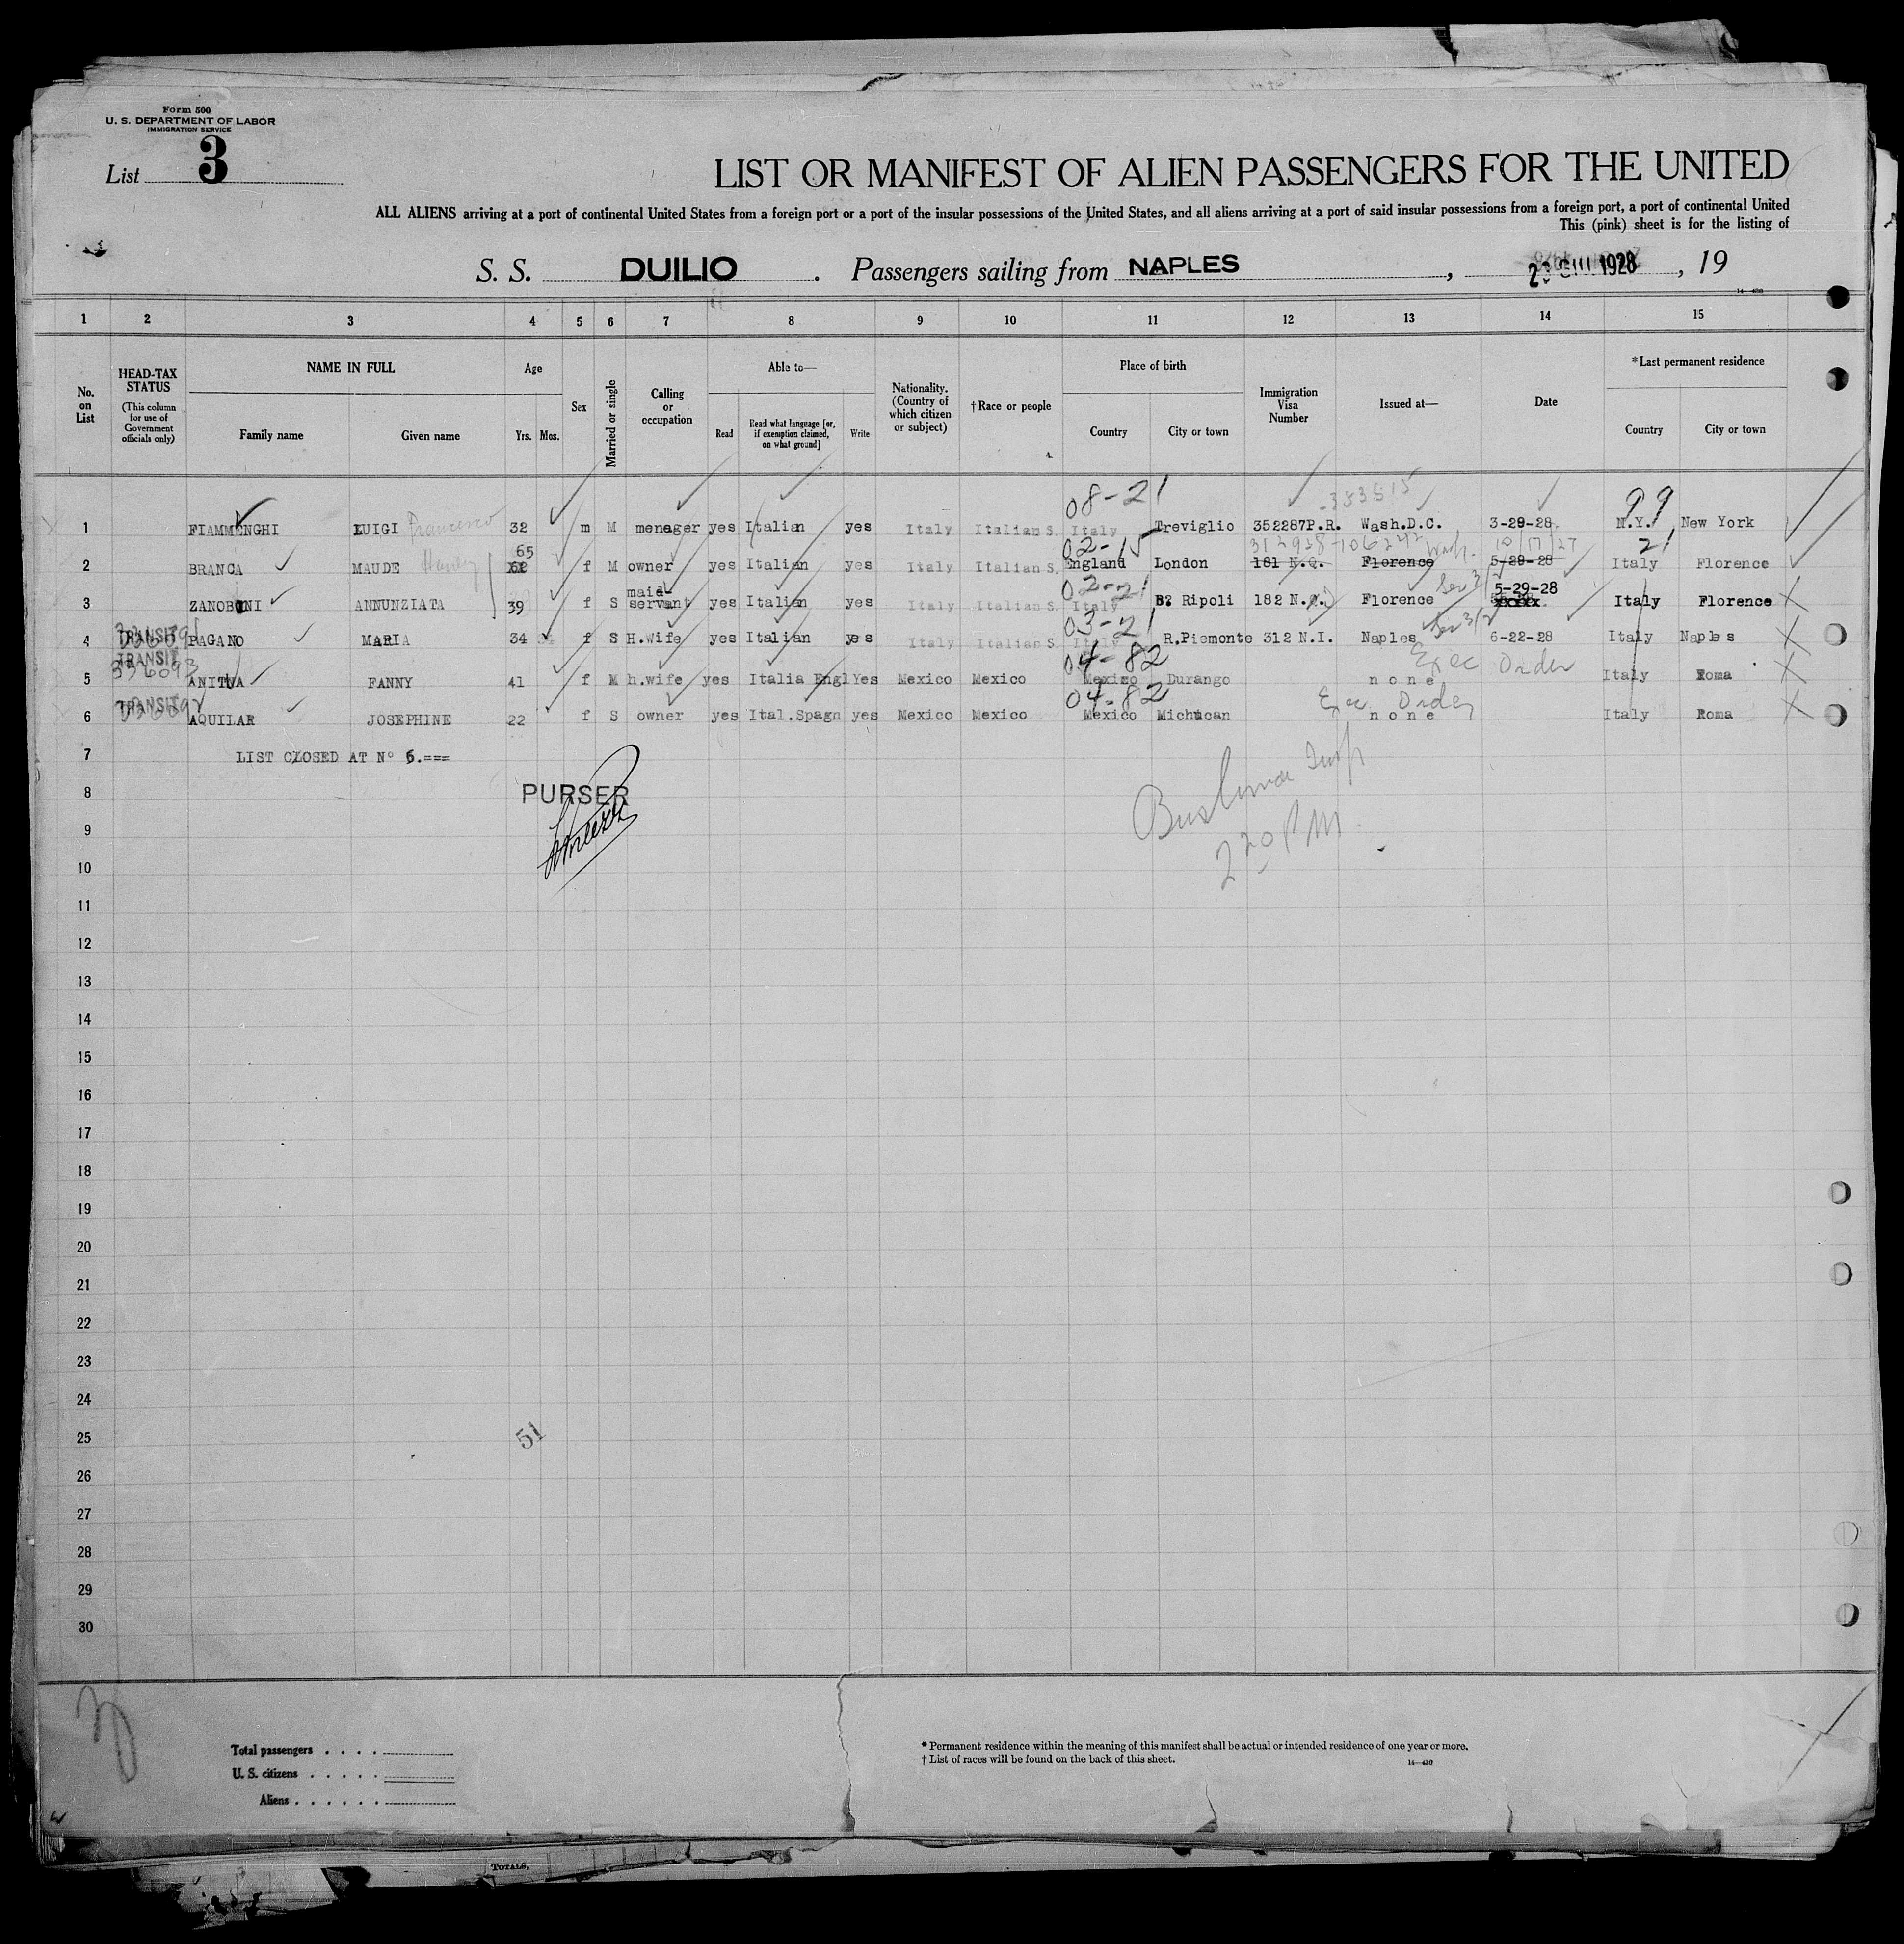 Form 500
U. S. DEPARTMENT OF LABOR
IMMIGRATION SERVICE
List 3
LIST OR MANIFEST OF ALIEN PASSENGERS FOR THE UNITED
ALL ALIENS arriving at a port of continental United States from a foreign port or a port of the insular possessions of the United States, and all aliens arriving at a port of said insular possessions from a foreign port, a port of continental United
This (pink) sheet is for the listing of
S. S. DUILIO. Passengers sailing from NAPLES, GIU 1928, 19
14—430
1 2 3 4 5 6 7 8 9 10 11 12 13 14 15
No. on List
HEAD-TAX STATUS
(This column for use of Government officials only)
NAME IN FULL
Family name
Given name
Age
Yrs. Mos.
Sex
Married or single
Calling or occupation
Able to—
Read
Read what language [or, if exemption claimed, on what ground]
Write
Nationality. (Country of which citizen or subject)
†Race or people
Place of birth
Country
City or town
Immigration Visa Number
Issued at—
Date
*Last permanent residence
Country
City or town
08-21 353515 99
1 FIAMMENGHI LUIGI Francesco 32 m M menager yes Italian yes Italy Italian S. Italy Treviglio 352287P.R. Wash.D.C. 3-29-28 N.Y. New York
65 02-15 312928-106242 Wash. 10/17/27 21
2 BRANCA MAUDE 62 f M owner yes Italian yes Italy Italian S. England London 181 N.Q. Florence 5-29-28 Italy Florence
maid- 02-21 5-29-28
3 ZANOBONI ANNUNZIATA 39 f S servant yes Italian yes Italy Italian S. Italy B? Ripoli 182 N. Florence xxxxx Italy Florence
03-21
4 TRANSIT PAGANO MARIA 34 f S H.wife yes Italian yes Italy Italian S. Italy R.Piemonte 312 N.I. Naples 6-22-28 Italy Naples
TRANSIT 04-82 Exec Order
5 336093 FANNY 41 f M h.wife yes Italia Engl Yes Mexico Mexico Mexico Durango none Italy Roma
TRANSIT 04-82 Exec Order
6 AQUILAR JOSEPHINE 22 f S owner yes Ital.Spagn yes Mexico Mexico Mexico Michucan none Italy Roma
7 LIST CLOSED AT N° 6.===
8 PURSER
9
220 PM
10
11
12
13
14
15
16
17
18
19
20
21
22
23
24
25
51
26
27
28
29
30
Total passengers . . . .
U. S. citizens . . . . .
Aliens . . . . . .
* Permanent residence within the meaning of this manifest shall be actual or intended residence of one year or more.
† List of races will be found on the back of this sheet.
14—430
TOTALS,